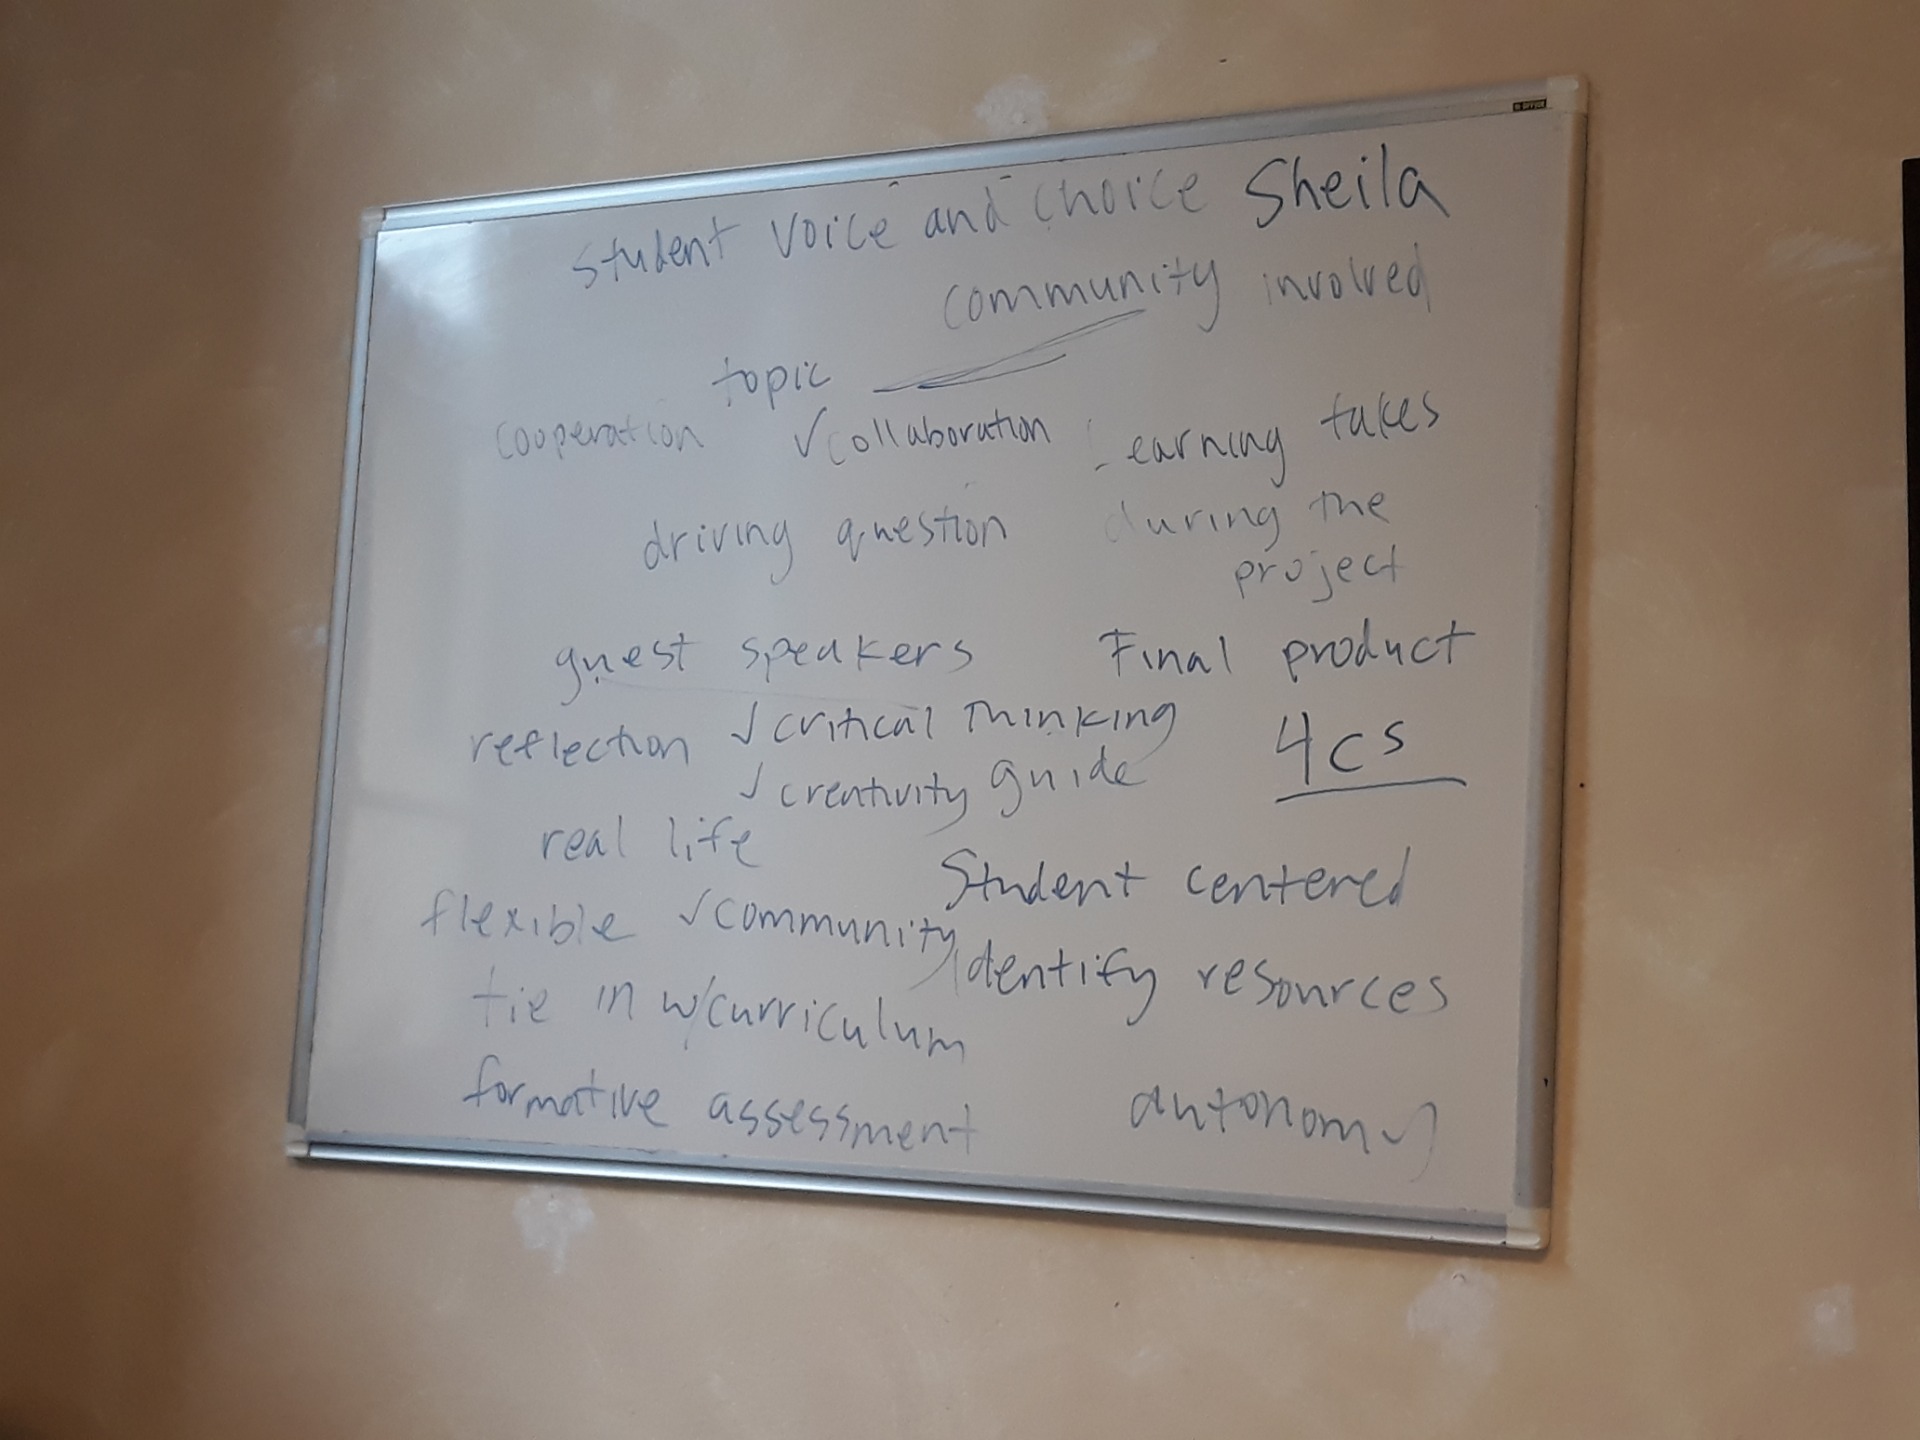 Student voice and choice Sheila
community involved
topic
cooperation ✓collaboration Learning takes
driving question during the
project
guest speakers Final product
reflection ✓critical thinking 4cs
✓creativity guide
real life
Student centered
flexible ✓community
identify resources
tie in w/curriculum
formative assessment autonomy